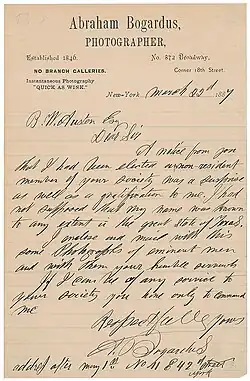 Abraham Bogardus,
PHOTOGRAPHER,
Established 1846. No. 872 Broadway,
NO BRANCH GALLERIES. Corner 18th Street.
Instantaneous Photography
"QUICK AS WINK."
New-York March 22d 1887
B. W. Austin Esq
Dear Sir
A notice from you
that I had been elected a non-resident
member of your society was a surprise
as well as a gratification to me. I had
not supposed that my name was known
to any extent in the great state of Texas.
I enclose and mail with this
some Photographs of eminent men
and with them your humble servants
If I can be of any service to
your society you have only to command
me
Respectfully yours
A. Bogardus
address after May 1st No 11 & 42nd Street